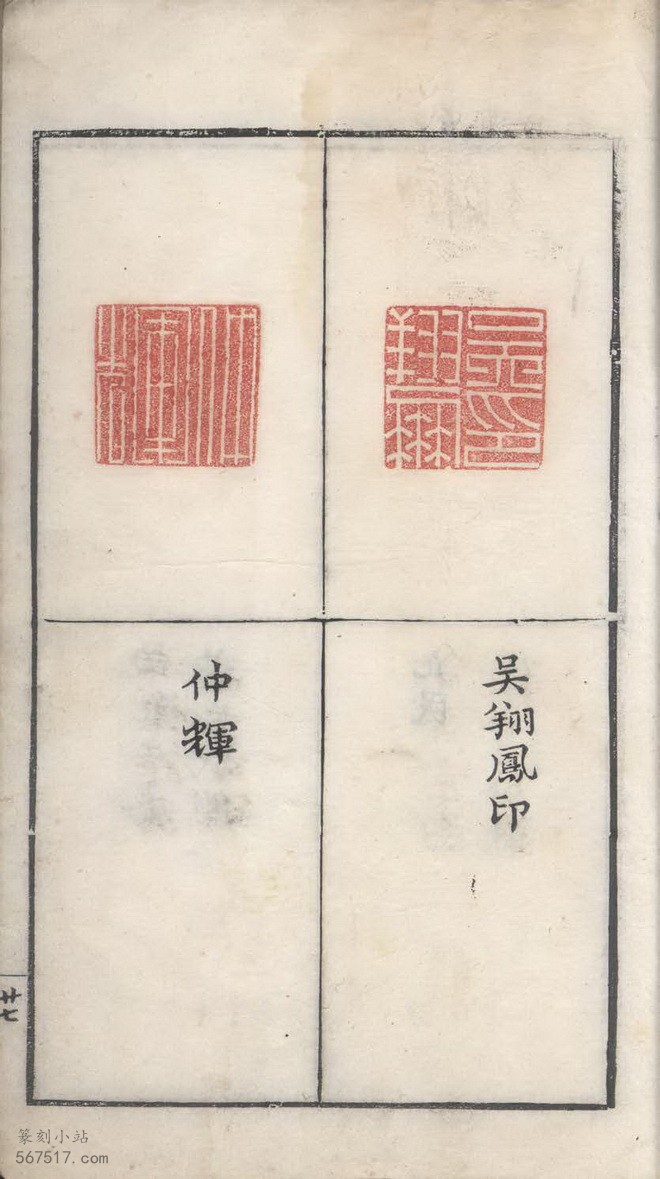 吴翔鳳印
仲輝
廿七
篆刻小站
567517.com